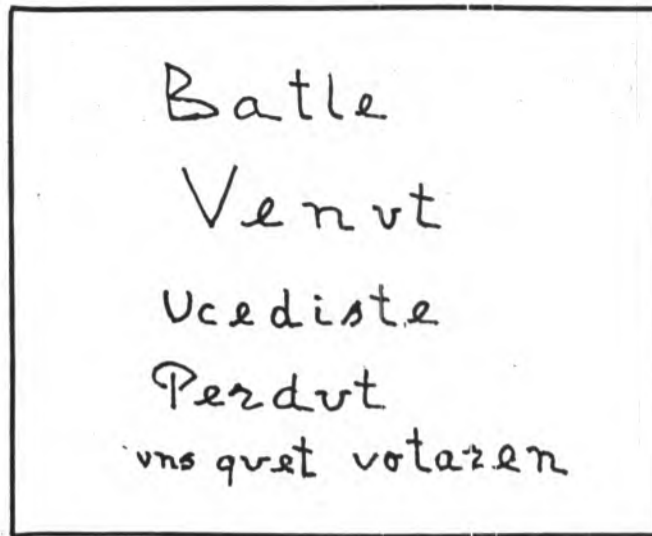 Batle
Venut
Ucediste
Perdut
uns quet votaren